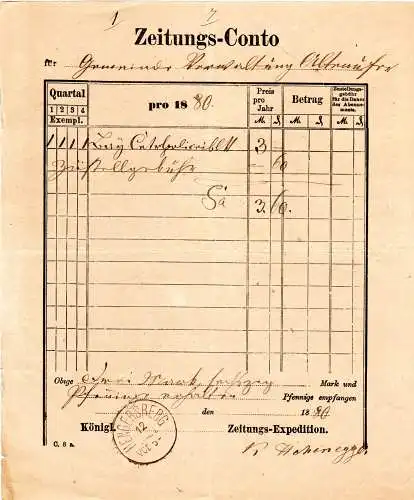 1 7
Zeitungs-Conto
für Gemeinde Verwaltung
Quartal
1 2 3 4
Exempl.
pro 1880.
Preis pro Jahr
M. ₰
Betrag
M. ₰
Zustellungsgebühr für die Dauer des Abonnements.
M. ₰
1 1 1 1 3 –
Zustellgebühr – 60
Sa 3. 60.
Obige Drei Mark, sechzig Mark und
Pfennige erhalten Pfennige empfangen
den 1880
HERGENSBERG
12
Königl. Zeitungs-Expedition.
C. 8 a.